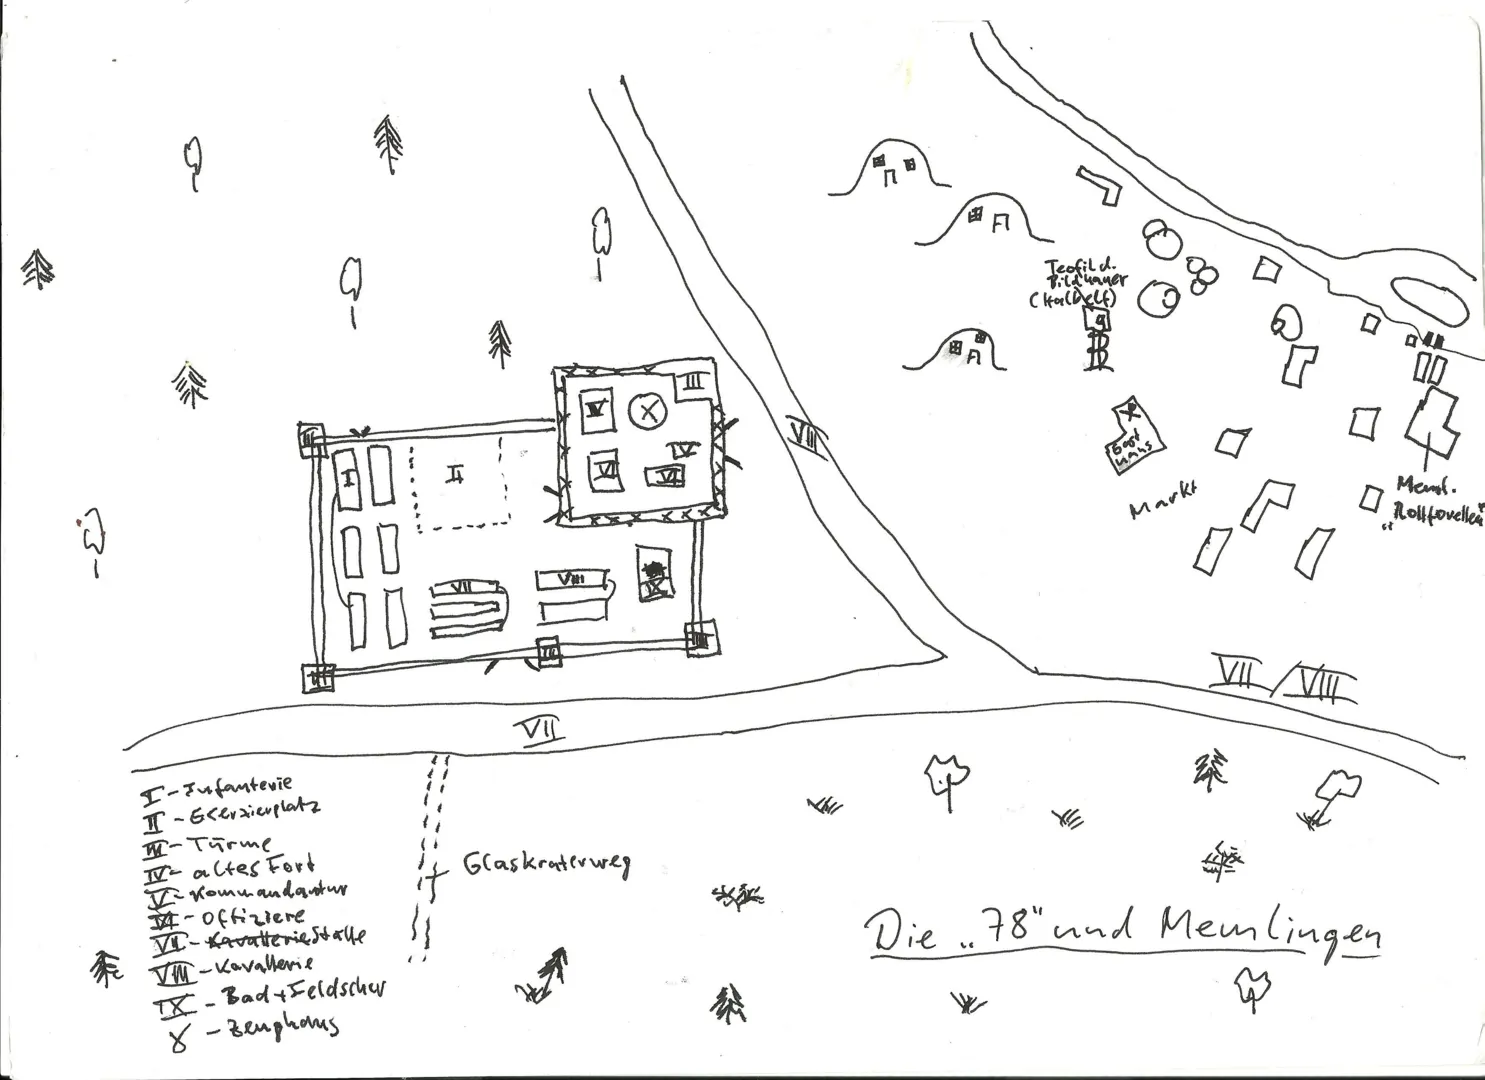 Teofil d.
Bildhauer
(Halbelf)
VIII
III
IV
X
III
I
II
V
VI
VI
Gast
haus
Markt
Meml.
"Rollforellen"
VII
VIII
IX
III
III
III
VII
VIII
VII
I - Infanterie
II - Exerzierplatz
III - Türme
IV - altes Fort
V - Kommandantur
VI - Offiziere
VII - Kavallerie Ställe
VIII - Kavallerie
IX - Bad + Feldscher
X - Zeughaus
Glaskraterweg
Die „78“ und Memlingen